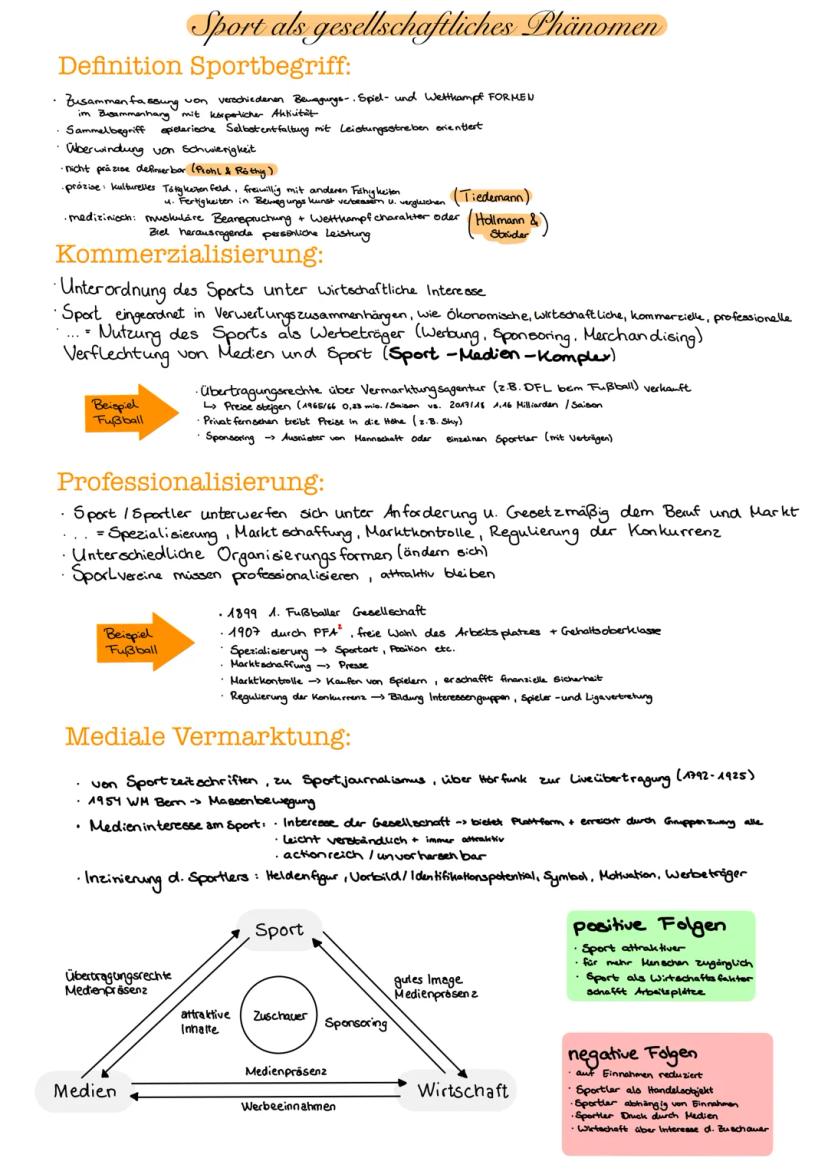 Sport als gesellschaftliches Phänomen
Definition Sportbegriff:
· Zusammenfassung von verschiedenen Bewegungs-, Spiel- und Wettkampf FORMEN
im Zusammenhang mit körperlicher Aktivität
· Sammelbegriff spielerische Selbstentfaltung mit Leistungsstreben orientiert
· Überwindung von Schwierigkeit
· nicht präzise definierbar (Prohl & Röthig)
· präzise: kulturelles Tätigkeitenfeld, freiwillig mit anderen Fähigkeiten
u. Fertigkeiten in Bewegungskunst verbessern u. vergleichen (Tiedemann)
· medizinisch: muskuläre Beanspruchung + Wettkampfcharakter oder (Hollmann &
Ziel herausragende persönliche Leistung Strüder)
Kommerzialisierung:
· Unterordnung des Sports unter wirtschaftliche Interesse
· Sport eingeordnet in Verwertungszusammenhängen, wie ökonomische, wirtschaftliche, kommerzielle, professionelle
· ... = Nutzung des Sports als Werbeträger (Werbung, Sponsoring, Merchandising)
Verflechtung von Medien und Sport (Sport-Medien-Komplex)
Beispiel
Fußball
· Übertragungsrechte über Vermarktungsagentur (z.B. DFL beim Fußball) verkauft
↳ Preise steigen (1965/66 0,33 mio. /Saison vs. 2017/18 1,16 Milliarden /Saison
· Privatfernsehen treibt Preise in die Höhe (z.B. Sky)
· Sponsoring → Ausrüster von Mannschaft oder einzelnen Sportler (mit Verträgen)
Professionalisierung:
· Sport / Sportler unterwerfen sich unter Anforderung u. Gesetzmäßig dem Beruf und Markt
· ... = Spezialisierung, Marktschaffung, Marktkontrolle, Regulierung der Konkurrenz
· Unterschiedliche Organisierungsformen (ändern sich)
· Sportvereine müssen professionalisieren, attraktiv bleiben
Beispiel
Fußball
· 1899 1. Fußballer Gesellschaft
· 1907 durch PFA², freie Wahl des Arbeitsplatzes + Gehaltsoberklasse
· Spezialisierung → Sportart, Position etc.
· Marktschaffung → Presse
· Marktkontrolle → Kaufen von Spielern, erschafft finanzielle Sicherheit
· Regulierung der Konkurrenz → Bildung Interessengruppen, Spieler- und Ligavertretung
Mediale Vermarktung:
· von Sportzeitschriften, zu Sportjournalismus, über Hörfunk zur Liveübertragung (1792-1925)
· 1954 WM Bern -> Massenbewegung
· Medieninteresse am Sport: · Interesse der Gesellschaft -> bietet Plattform + erreicht durch Gruppenzwang alle
· Leicht verständlich + immer attraktiv
· actionreich / unvorhersehbar
· Inzinierung d. Sportlers: Heldenfigur, Vorbild/Identifikationspotential, Symbol, Motivation, Werbeträger
Sport
Übertragungsrechte
Medienpräsenz
attraktive
Inhalte
Zuschauer
Sponsoring
gutes Image
Medienpräsenz
Medien
Medienpräsenz
Werbeeinnahmen
Wirtschaft
positive Folgen
· Sport attraktiver
· für mehr Menschen zugänglich
· Sport als Wirtschaftsfaktor
schafft Arbeitsplätze
negative Folgen
· auf Einnahmen reduziert
· Sportler als Handelsobjekt
· Sportler abhängig von Einnahmen
· Sportler Druck durch Medien
· Wirtschaft über Interesse d. Zuschauer